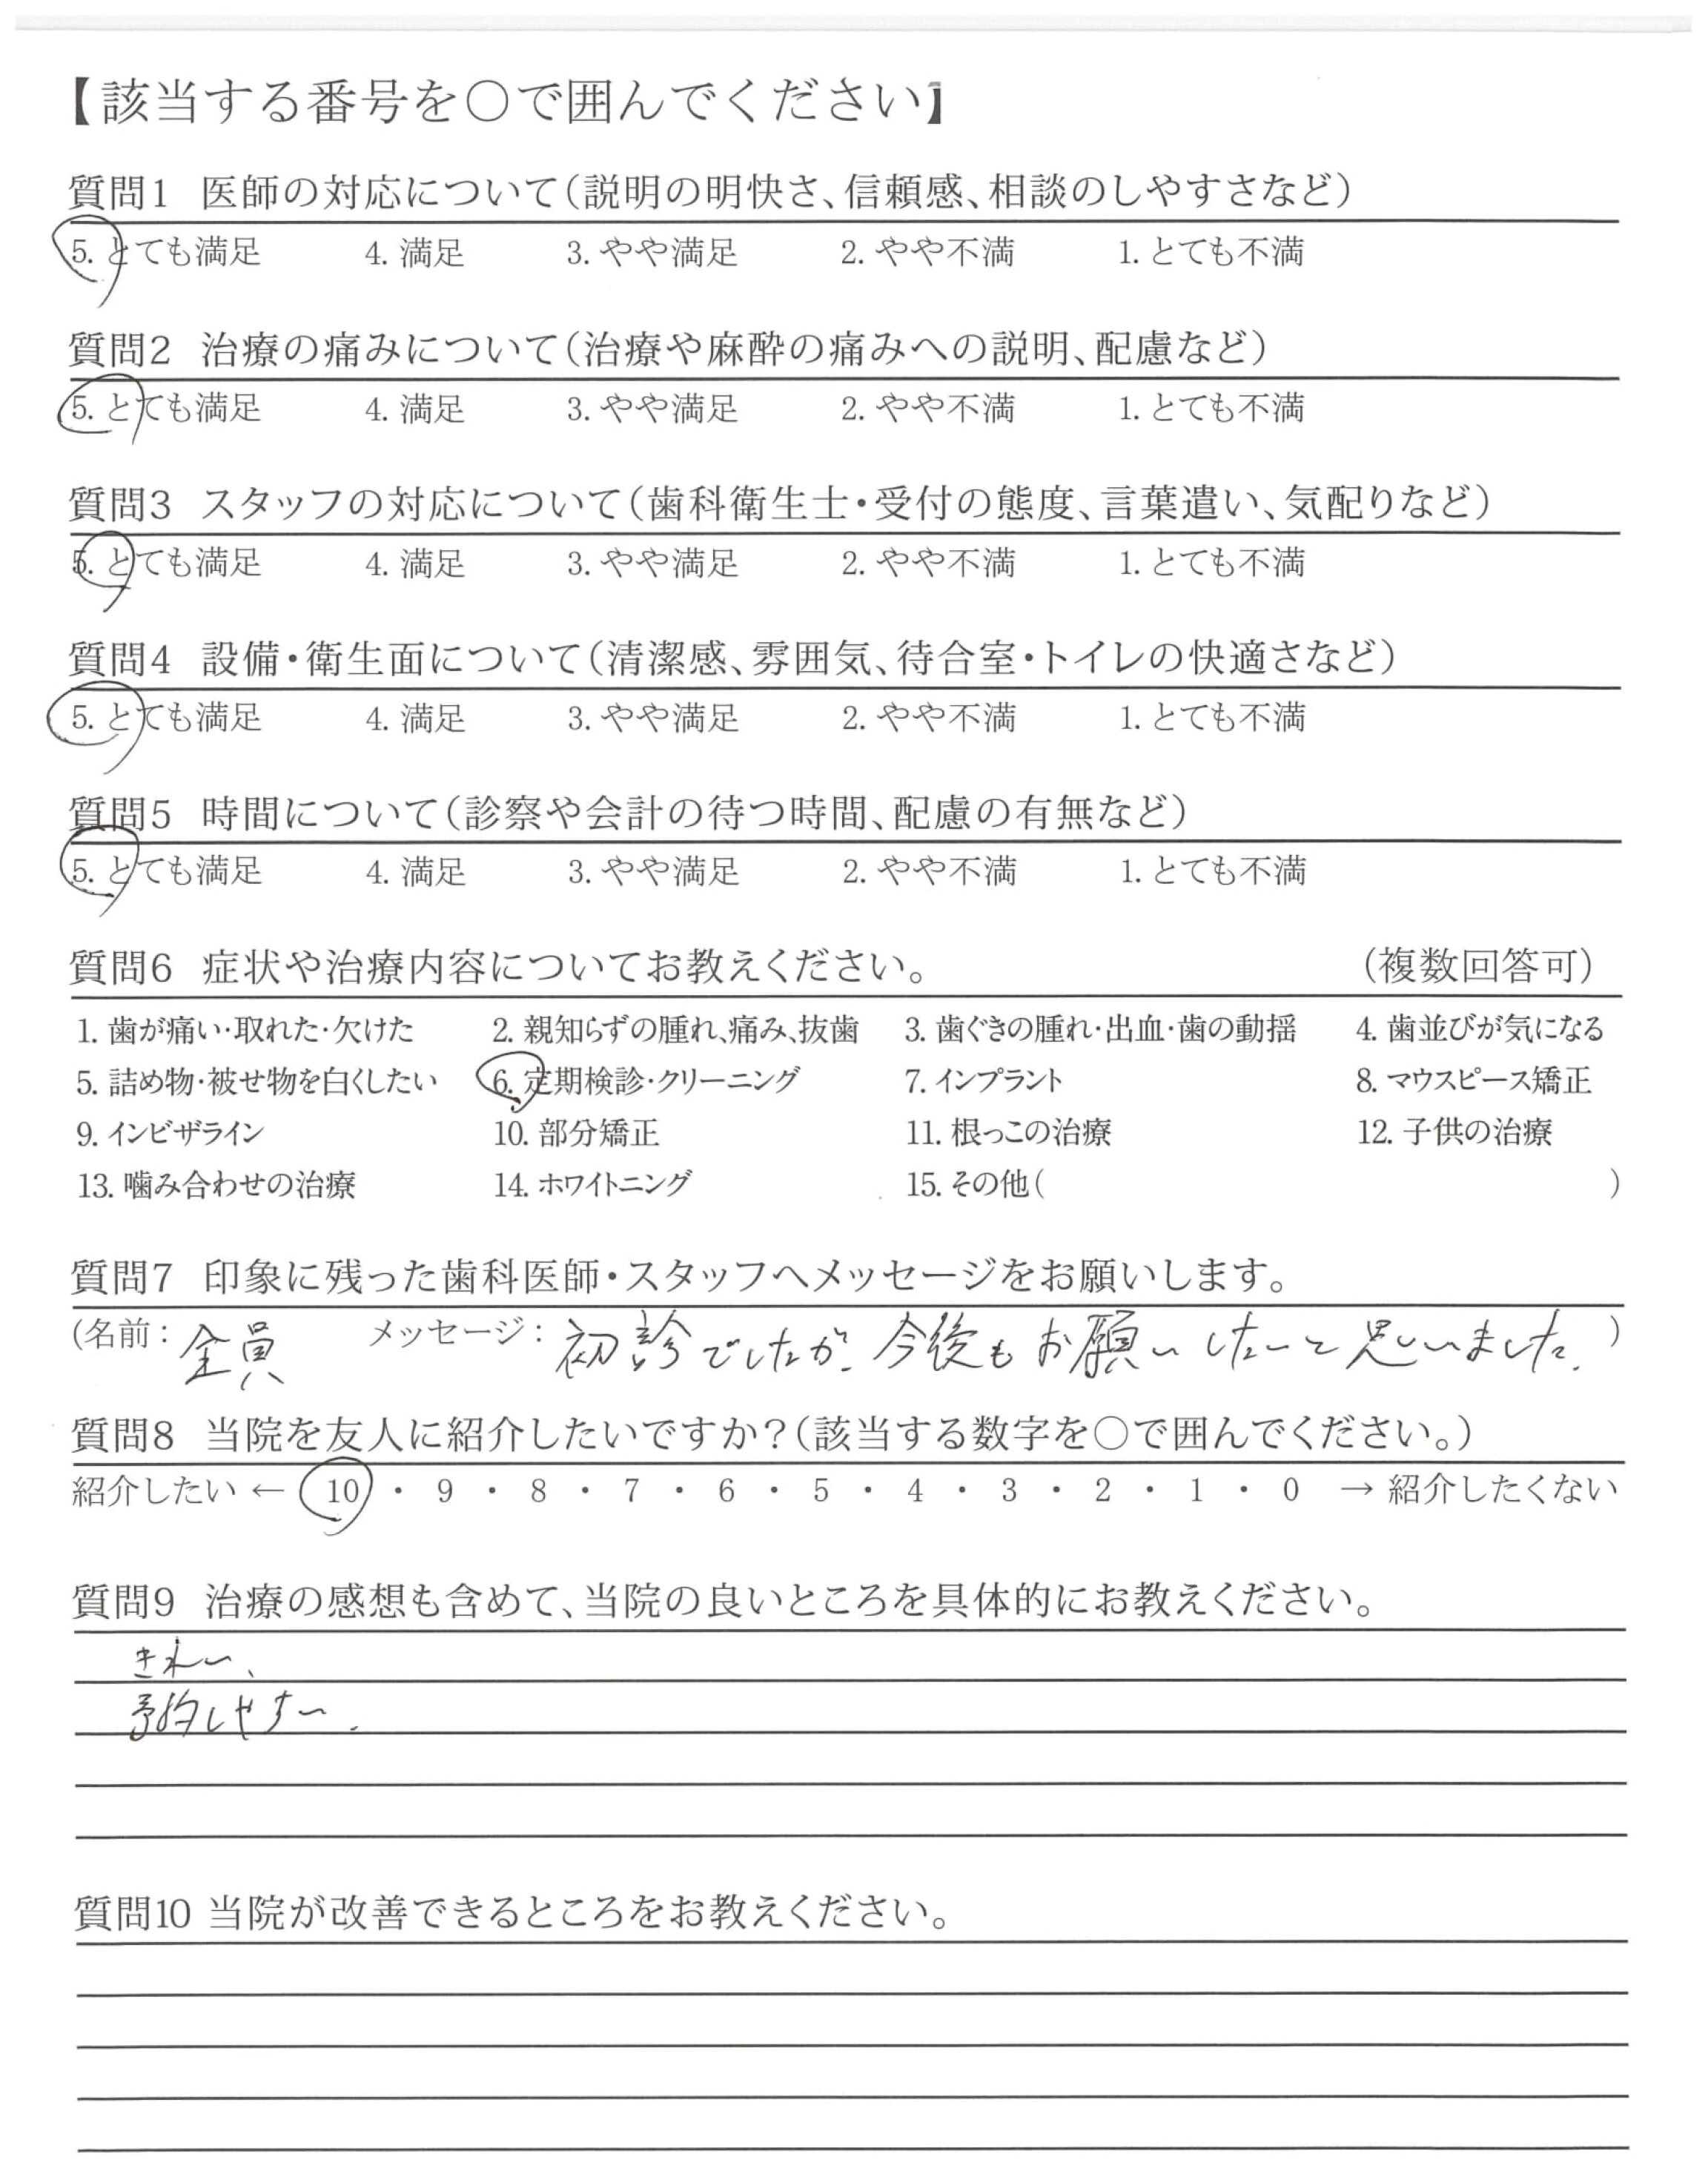 【該当する番号を〇で囲んでください】
質問1 医師の対応について（説明の明快さ、信頼感、相談のしやすさなど）
5. とても満足 4. 満足 3. やや満足 2. やや不満 1. とても不満
質問2 治療の痛みについて（治療や麻酔の痛みへの説明、配慮など）
5. とても満足 4. 満足 3. やや満足 2. やや不満 1. とても不満
質問3 スタッフの対応について（歯科衛生士・受付の態度、言葉遣い、気配りなど）
5. とても満足 4. 満足 3. やや満足 2. やや不満 1. とても不満
質問4 設備・衛生面について（清潔感、雰囲気、待合室・トイレの快適さなど）
5. とても満足 4. 満足 3. やや満足 2. やや不満 1. とても不満
質問5 時間について（診察や会計の待つ時間、配慮の有無など）
5. とても満足 4. 満足 3. やや満足 2. やや不満 1. とても不満
質問6 症状や治療内容についてお教えください。 （複数回答可）
1. 歯が痛い・取れた・欠けた 2. 親知らずの腫れ、痛み、抜歯 3. 歯ぐきの腫れ・出血・歯の動揺 4. 歯並びが気になる
5. 詰め物・被せ物を白くしたい 6. 定期検診・クリーニング 7. インプラント 8. マウスピース矯正
9. インビザライン 10. 部分矯正 11. 根っこの治療 12. 子供の治療
13. 噛み合わせの治療 14. ホワイトニング 15. その他（ ）
質問7 印象に残った歯科医師・スタッフへメッセージをお願いします。
(名前：全員 メッセージ：初診でしたが、今後もお願いしたいと思いました。)
質問8 当院を友人に紹介したいですか？（該当する数字を〇で囲んでください。）
紹介したい ← 10 ・ 9 ・ 8 ・ 7 ・ 6 ・ 5 ・ 4 ・ 3 ・ 2 ・ 1 ・ 0 → 紹介したくない
質問9 治療の感想も含めて、当院の良いところを具体的にお教えください。
きれい、
予約しやすい。
質問10 当院が改善できるところをお教えください。